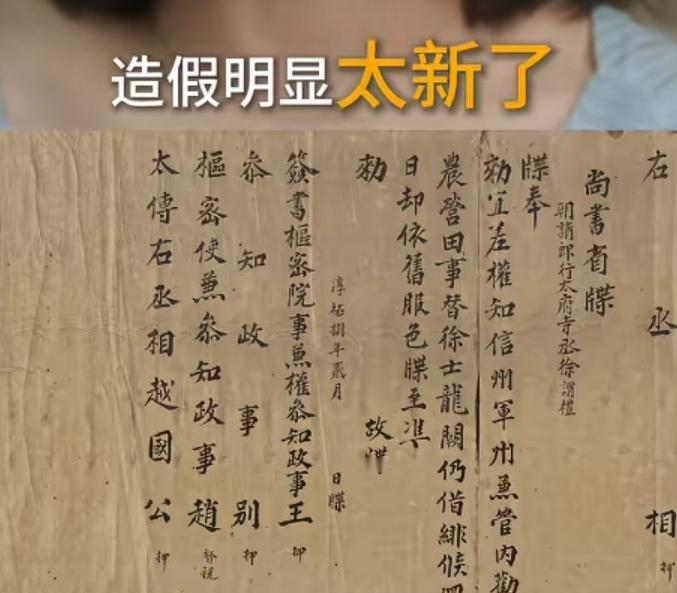 造假明显太新了
右丞相 押
尚書省牒
朝請郎行太府寺丞徐謂禮
牒奉
勑宜差權知信州軍州兼管內勸
農營田事替徐士龍闕仍借緋候
日却依舊服色牒至準
勑故牒
淳祐捌年貳月 日牒
簽書樞密院事兼權叅知政事王 押
叅知政事别 押
樞密使兼叅知政事趙
太傅右丞相越國公 押